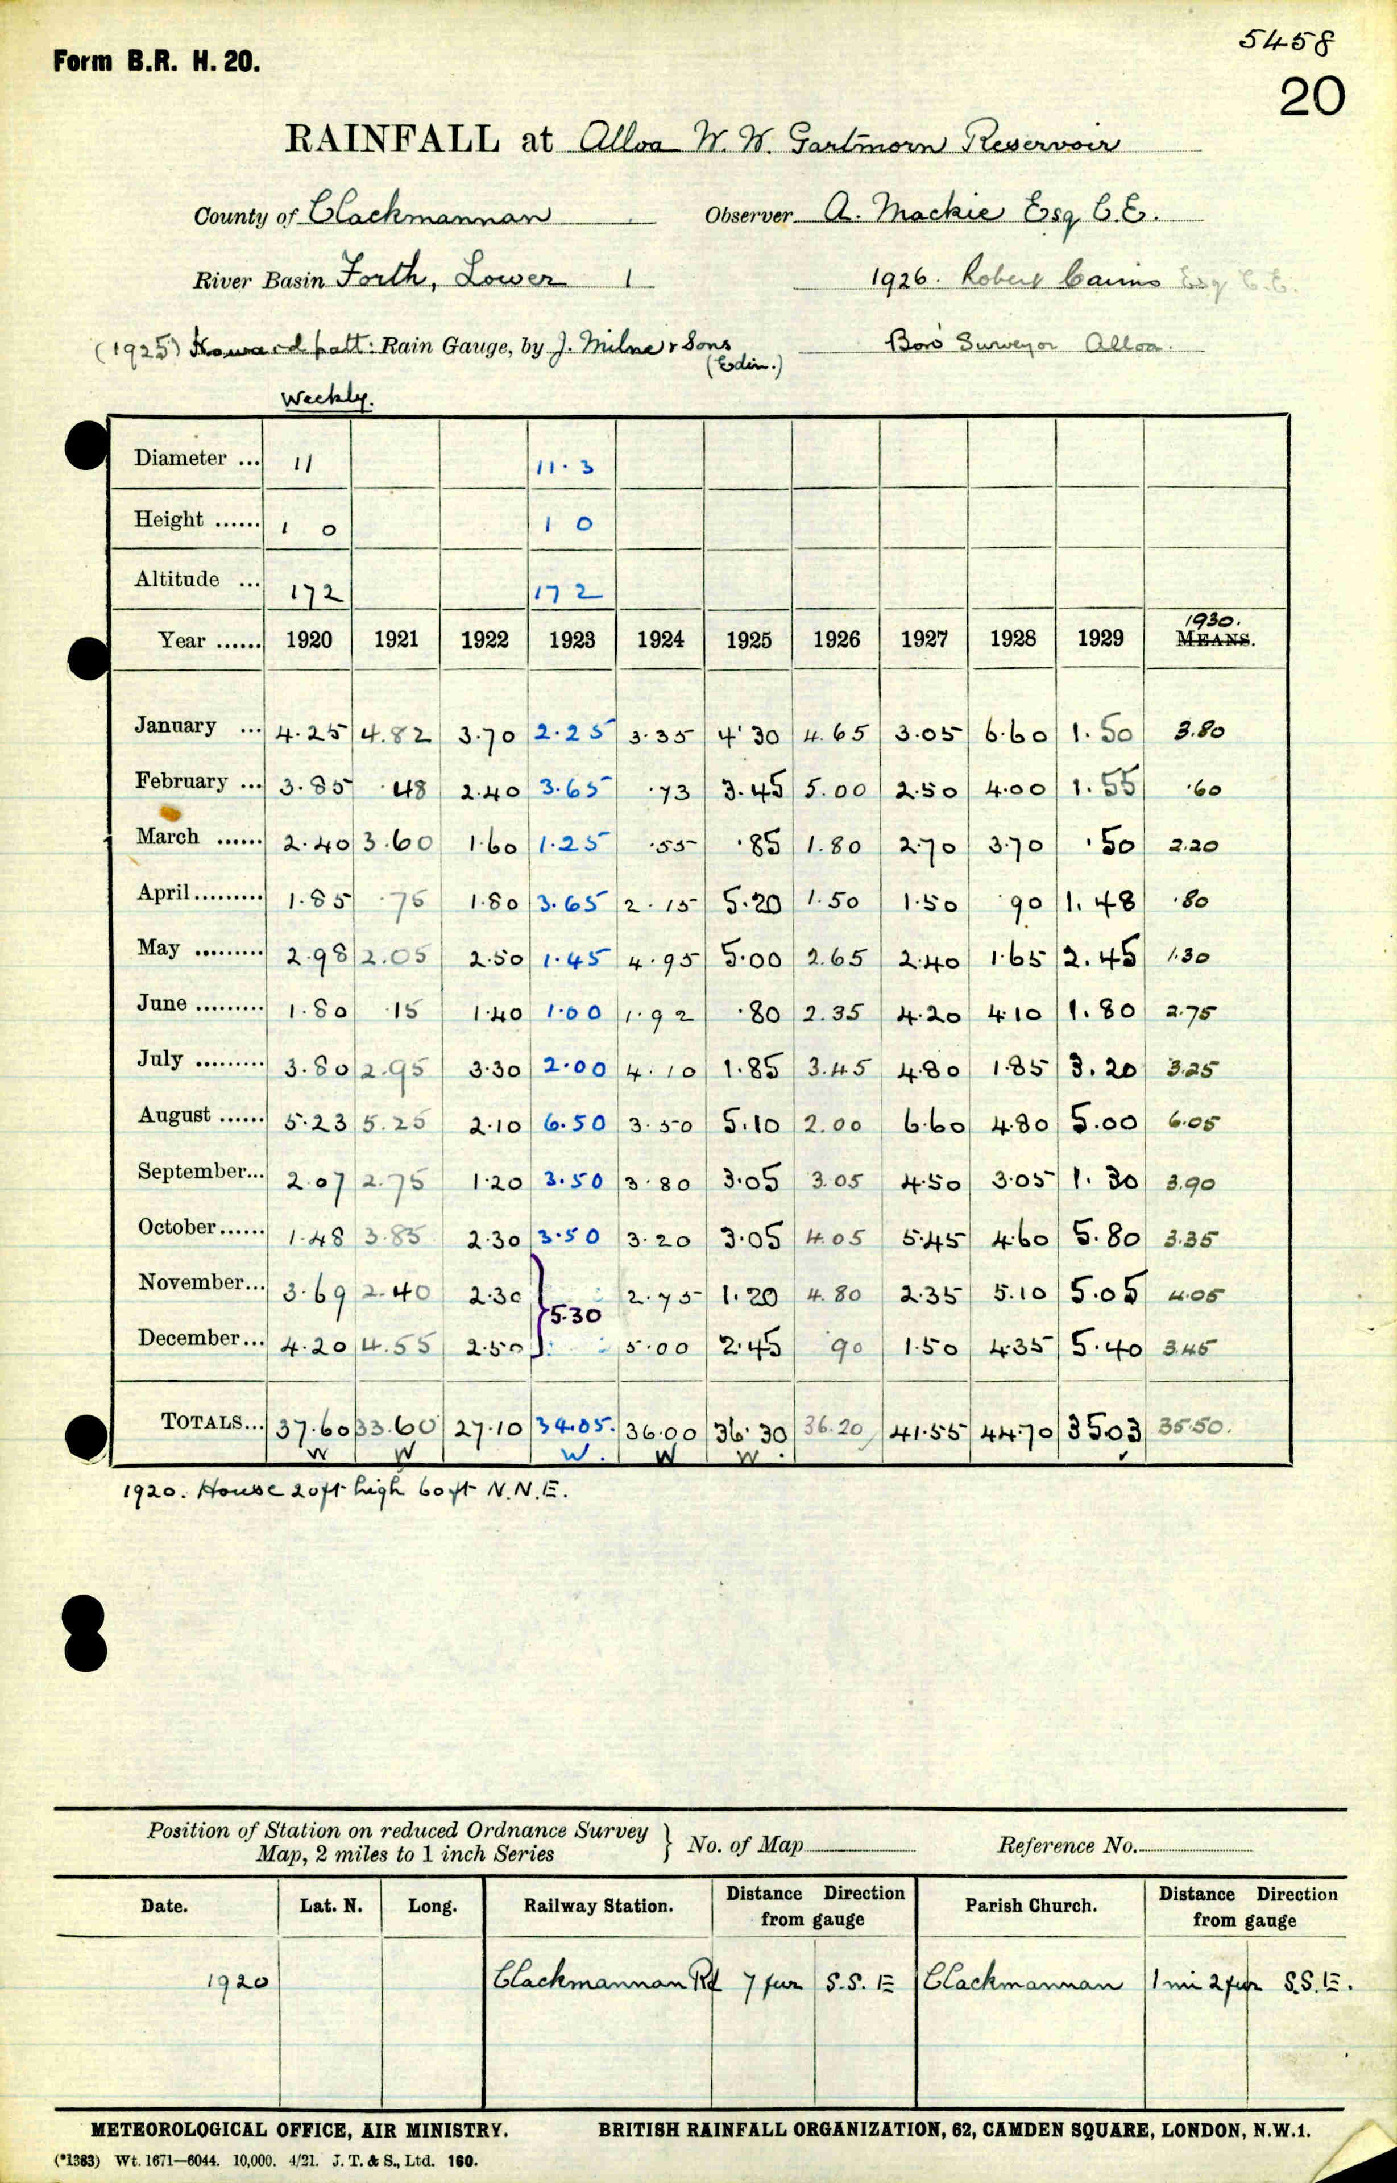 5458
Form B.R. H. 20.
20
RAINFALL at Alloa W. W. Gartmorn Reservoir
County of Clackmannan Observer A. Mackie Esq C.E.
River Basin Forth, Lower 1 1926. Robert Cairns Esq C.E.
(1925) Howard patt: Rain Gauge, by J. Milne & Sons (Edin.) Boro' Surveyor Alloa.
Weekly.
Diameter ... 11 11.3
Height ...... 1 0 1 0
Altitude ... 172 172
Year ...... 1920 1921 1922 1923 1924 1925 1926 1927 1928 1929 1930. MEANS.
January ... 4.25 4.82 3.70 2.25 3.35 4.30 4.65 3.05 6.60 1.50 3.80
February ... 3.85 .48 2.40 3.65 .73 3.45 5.00 2.50 4.00 1.55 .60
March ...... 2.40 3.60 1.60 1.25 .55 .85 1.80 2.70 3.70 .50 2.20
April ......... 1.85 .75 1.80 3.65 2.15 5.20 1.50 1.50 90 1.48 .80
May ......... 2.98 2.05 2.50 1.45 4.95 5.00 2.65 2.40 1.65 2.45 1.30
June ......... 1.80 .15 1.40 1.00 1.92 .80 2.35 4.20 4.10 1.80 2.75
July ......... 3.80 2.95 3.30 2.00 4.10 1.85 3.45 4.80 1.85 3.20 3.25
August ...... 5.23 5.25 2.10 6.50 3.50 5.10 2.00 6.60 4.80 5.00 6.05
September... 2.07 2.75 1.20 3.50 3.80 3.05 3.05 4.50 3.05 1.30 3.90
October...... 1.48 3.85 2.30 3.50 3.20 3.05 4.05 5.45 4.60 5.80 3.35
November... 3.69 2.40 2.30 } 5.30 2.75 1.20 4.80 2.35 5.10 5.05 4.05
December... 4.20 4.55 2.50 5.00 2.45 90 1.50 4.35 5.40 3.45
TOTALS... 37.60 33.60 27.10 34.05. 36.00 36.30 36.20 41.55 44.70 35.03 35.50.
W W W. W W.
1920. House 20ft high 60ft N.N.E.
Position of Station on reduced Ordnance Survey
Map, 2 miles to 1 inch Series } No. of Map Reference No.
Date. Lat. N. Long. Railway Station. Distance Direction from gauge Parish Church. Distance Direction from gauge
1920 Clackmannan Rd 7 fur S.S.E Clackmannan 1 mi 2 fur S.S.E.
METEOROLOGICAL OFFICE, AIR MINISTRY. BRITISH RAINFALL ORGANIZATION, 62, CAMDEN SQUARE, LONDON, N.W.1.
(*1383) Wt. 1671—6044. 10,000. 4/21. J. T. & S., Ltd. 160.